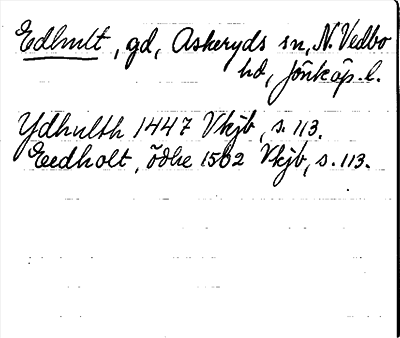 Edhult, gd, Askeryds sn, N. Vedbo
hd, Jönköp. l.
Ydhulth 1447 Vkjb, s. 113.
Eedholt, ödhe 1502 Vkjb, s. 113.